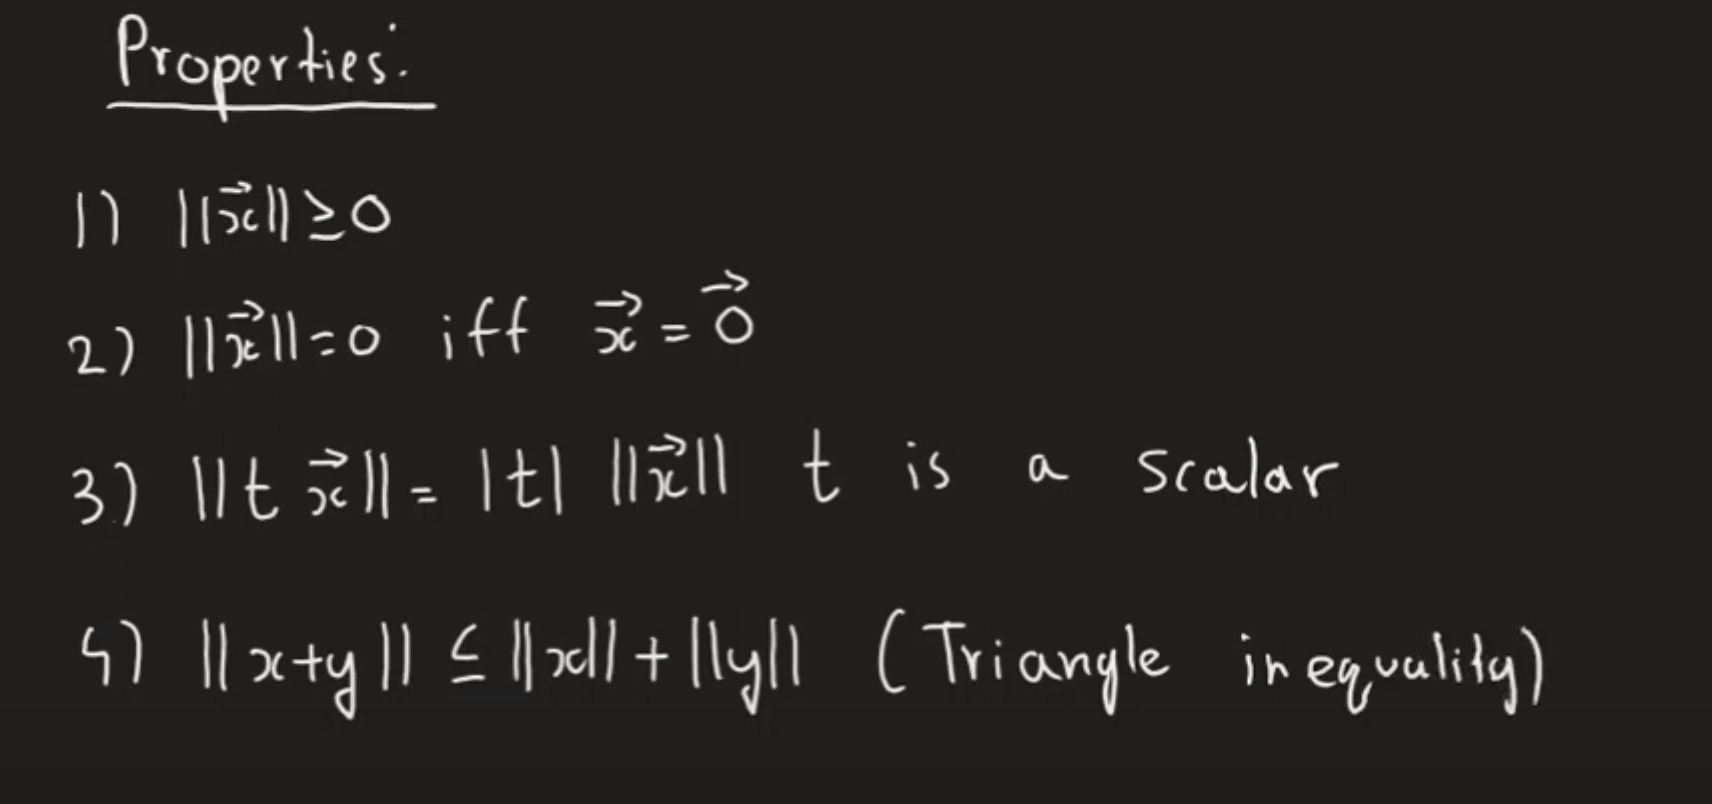 Properties:
1) ||x⃗|| ≥ 0
2) ||x⃗|| = 0 iff x⃗ = 0⃗
3) ||t x⃗|| = |t| ||x⃗|| t is a scalar
4) ||x+y|| ≤ ||x|| + ||y|| (Triangle inequality)